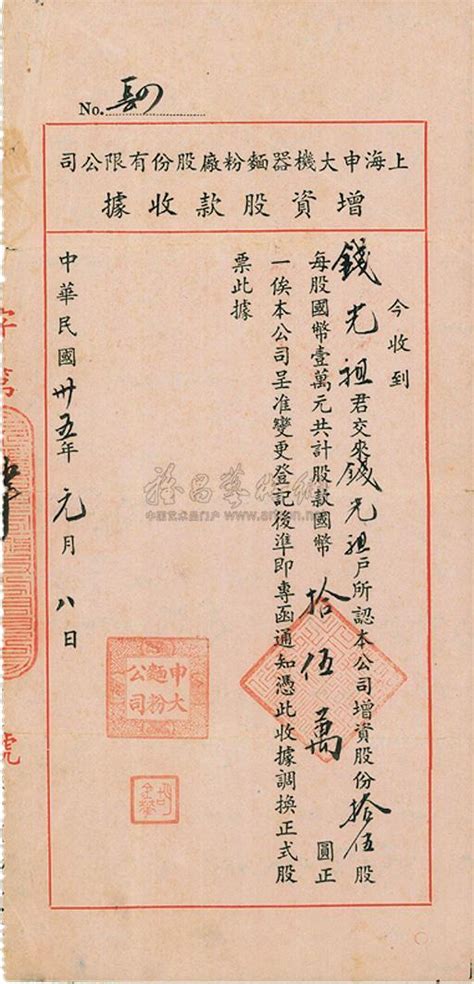 No.
上海申大機器麵粉廠股份有限公司
增資股款收據
今收到
錢光祖君交來錢光祖戶所認本公司增資股份拾伍股
每股國幣壹萬元共計股款國幣拾伍萬圓正
一俟本公司呈准變更登記後準即專函通知憑此收據調換正式股
票此據
中華民國卅五年元月八日
申大
麵粉
公司
字第
號
中国艺术品门户 www.artxun.net